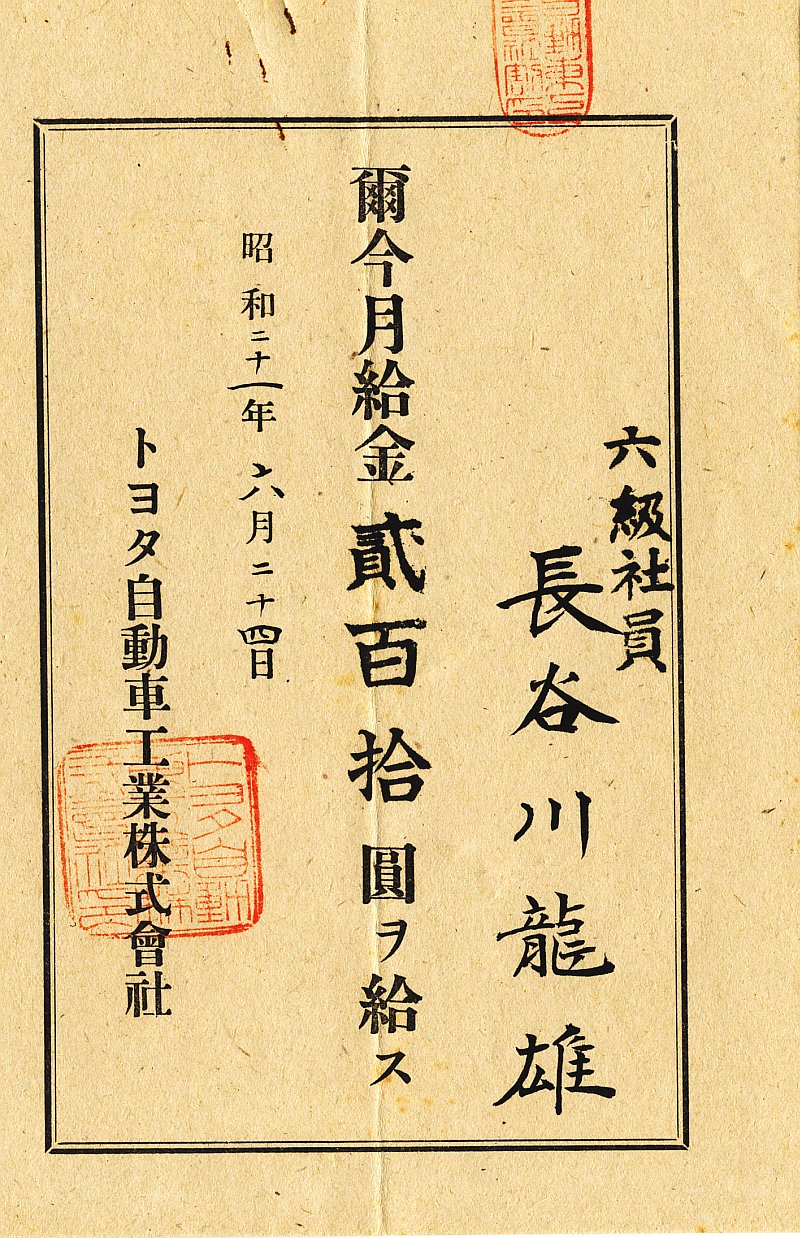 六級社員
長谷川龍雄
爾今月給金貳百拾圓ヲ給ス
昭和二十一年六月二十四日
トヨタ自動車工業株式會社